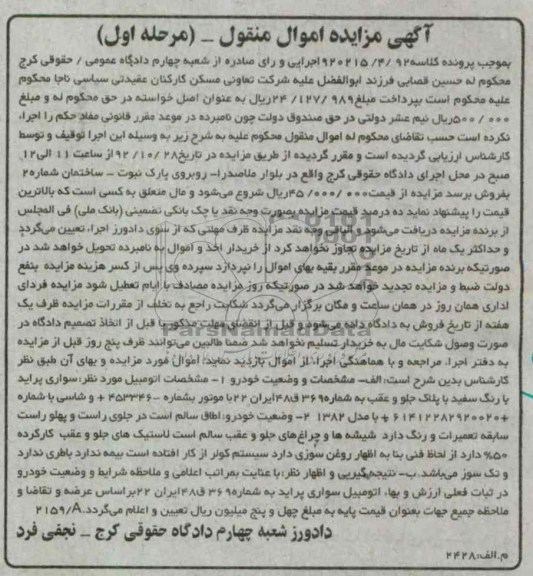 آگهی مزایده اموال منقول _ (مرحله اول)
بموجب پرونده کلاسه ۹۲ /۴/ ۹۲۰۲۱۵اجرایی و رای صادره از شعبه چهارم دادگاه عمومی / حقوقی کرج
محکوم له حسین قصابی فرزند ابوالفضل علیه شرکت تعاونی مسکن کارکنان عقیدتی سیاسی ناجا محکوم
علیه محکوم است بپرداخت مبلغ۹۸۹ /۱۲۷/ ۲۴ریال به عنوان اصل خواسته در حق محکوم له و مبلغ
۰۰۰ /۵۰۰ریال نیم عشر دولتی در حق صندوق دولت چون نامبرده در موعد مقرر قانونی مفاد حکم را اجراء
نکرده است حسب تقاضای محکوم له اموال منقول محکوم علیه به شرح زیر به وسیله این اجرا توقیف و توسط
کارشناس ارزیابی گردیده است و مقرر گردیده از طریق مزایده در تاریخ۲۸ /۱۰/ ۹۲از ساعت ۱۱ الی۱۲
صبح در محل اجرای دادگاه حقوقی کرج واقع در بلوار ملاصدرا- روبروی پارک نبوت - ساختمان شماره۲
بفروش برسد مزایده از قیمت۰۰۰ /۰۰۰/ ۴۵ریال شروع می‌شود و مال متعلق به کسی است که بالاترین
قیمت را پیشنهاد نماید ده درصد قیمت مزایده بصورت وجه نقد یا چک بانکی تضمینی (بانک ملی) فی المجلس
از برنده مزایده دریافت می‌شود و الباقی وجه نقد مزایده ظرف مهلتی که از سوی دادورز اجرا، تعیین می‌گردد
و حداکثر یک ماه از تاریخ مزایده تجاوز نخواهد کرد از خریدار اخذ و اموال به نامبرده تحویل خواهد شد در
صورتیکه برنده مزایده در موعد مقرر بقیه بهای اموال را نپردازد سپرده وی پس از کسر هزینه مزایده بنفع
دولت ضبط و مزایده تجدید خواهد شد در صورتیکه روز مزایده مصادف با ایام تعطیل شود مزایده فردای
اداری همان روز در همان ساعت و مکان برگزار می‌گردد شکایت راجع به تخلف از مقررات مزایده ظرف یک
هفته از تاریخ فروش به دادگاه داده می‌شود و قبل از انقضای مهلت مذکور یا قبل از اتخاذ تصمیم دادگاه در
صورت وصول شکایت مال به خریدار تسلیم نخواهد شد ضمنا طالبین می‌توانند ظرف پنج روز قبل از مزایده
به دفتر اجرا، مراجعه و با هماهنگی اجرا، از اموال بازدید نمایند، اموال مورد مزایده و بهای آن طبق نظر
کارشناس بدین شرح است: الف- مشخصات و وضعیت خودرو ۱- مشخصات اتومبیل مورد نظر:سواری پراید
با رنگ سفید با پلاک جلو و عقب به شماره۳۶۹ ق۴۸ایران ۲۲با موتور بشماره -۴۵۳۳۴۶ + و شاسی با شماره
+۶۱۴۱۲۲۸۲۹۲۰۰۲۰ + با مدل ۱۳۸۲ ۲- وضعیت خودرو: اطاق سالم است در جلوی راست و پهلو راست
سابقه تعمیرات و رنگ دارد شیشه ها و چراغ‌های جلو و عقب سالم است لاستیک های جلو و عقب کارکرده
۵۰% دارد از لحاظ فنی بنا به اظهار روغن سوزی دارد سیستم کولر از کار افتاده است بیمه ندارد باطری ندارد
و تک سوز می‌باشد. ب- نتیجه‌گیریی و اظهار نظر: با عنایت بمراتب اعلامی و ملاحظه شرایط و وضعیت خودرو
در ثبات فعلی ارزش و بهاء اتومبیل سواری پراید به شماره۳۶۹ ق۴۸ایران ۲۲براساس عرضه و تقاضا و
ملاحظه جمیع جهات بعنوان قیمت پایه به مبلغ چهل و پنج میلیون ریال تعیین و اعلام می‌گردد.۲۱۵۹/A
دادورز شعبه چهارم دادگاه حقوقی کرج _ نجفی فرد
م.الف:۲۴۲۸